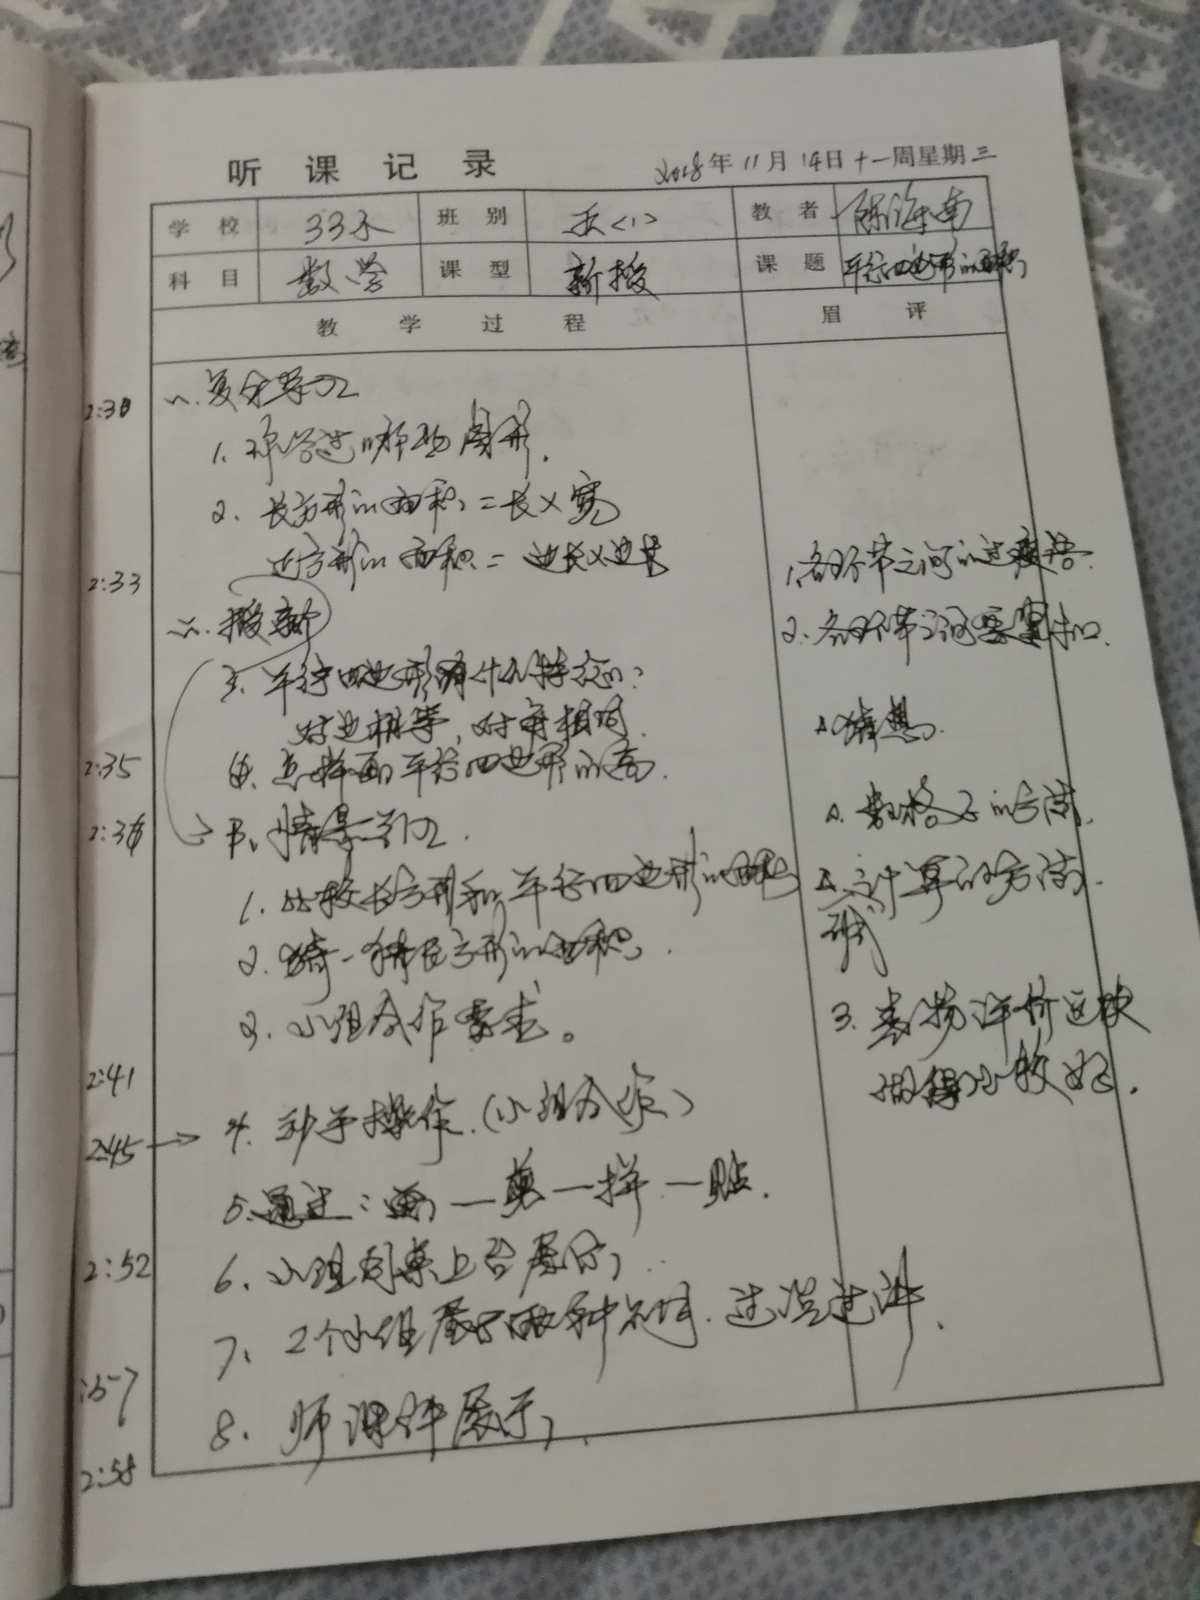 听课记录 2018年11月14日十一周星期三
学校 33小 班别 五<1> 教者
科目 数学 课型 新授 课题 平行四边形的面积
教学过程 眉评
2:30 一、复习导入
1. 学过哪些图形.
2. 长方形的面积=长×宽
正方形的面积=边长×边长
2:33
二. 授新
3. 平行四边形有什么特征:
对边相等,对角相同.
2:35 4. 怎样画平行四边形的高.
2:36 B、情景导入.
1. 比较长方形和平行四边形的面积
2. 猜一猜长方形的面积.
3. 小组合作要求。
2:41
2:45 → 4. 动手操作.(小组合作)
5.通过:画一剪一拼一贴.
2:52 6. 小组到桌上台展示,
7、2个小组展示两种 . 边说边讲、
:57
8. 师课件展示,
2:58
1.各环节之间的过渡语.
2. 各环节之间要 扣.
A猜想.
A. 数格子的方法.
A. 计算的方法.
3. 表扬评价这块
做得比较好.